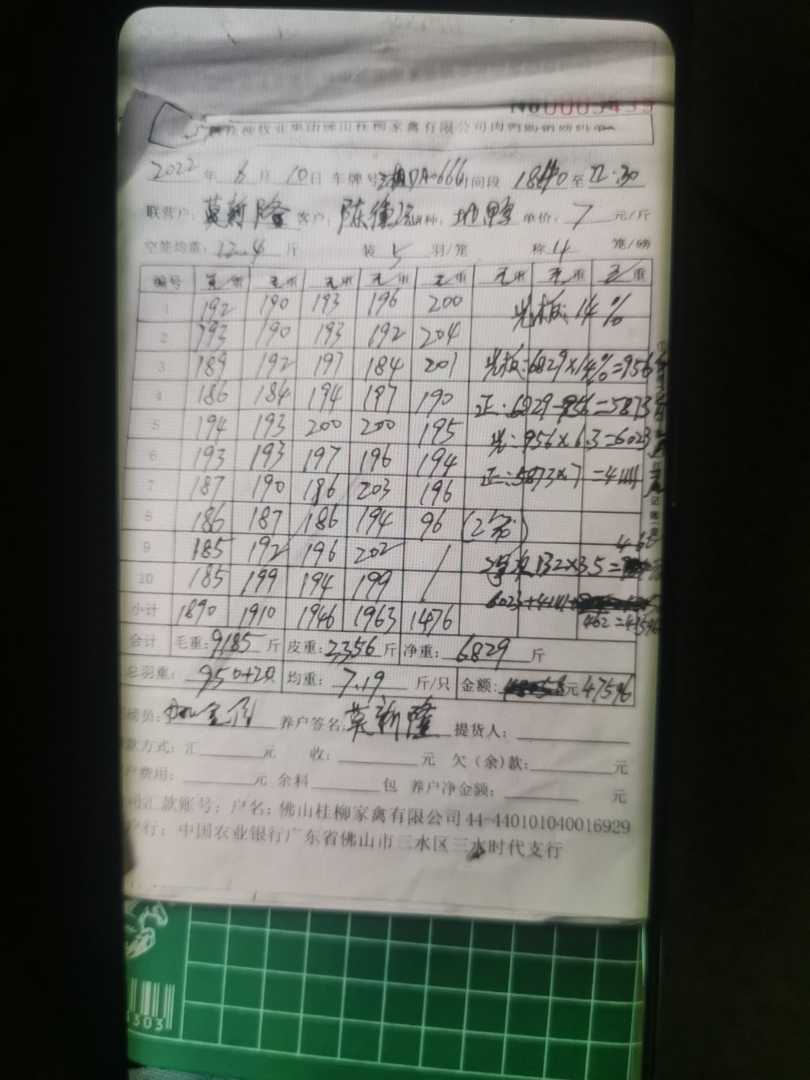 No 0003435
佛山桂柳家禽有限公司肉鸭购销磅码单
2022 年 6 月 10 日 车牌号 DA·666 时间段 18:40 至 22:30
联营户: 莫新隆 客户: 陈 品种: 地鸭 单价: 7 元/斤
空笼均重: 12.4 斤 装 5 羽/笼 称 4 笼/磅
编号 毛重 毛重 毛重 毛重 毛重 毛重 毛重 毛重
1 192 190 193 196 200 光板: 14%
2 193 190 193 192 204
3 189 192 197 184 201 光板: 6829×14%=956
4 186 184 194 197 190 正: 6829-956=5873
5 194 193 200 200 195 光: 956×6.3=6023
6 193 193 197 196 194 正: 5873×7=41111
7 187 190 186 203 196
8 186 187 186 194 96 (2笼)
9 185 192 196 202 / 462
10 185 199 194 199 / 132×3.5=
6023+41111
小计 1890 1910 1946 1963 1476 462=47596
合计 毛重: 9185 斤 皮重: 2356 斤 净重: 6829 斤
总羽重: 950+20 均重: 7.19 斤/只 金额: 元 47596
磅员: 养户签名: 莫新隆 提货人:
款方式: 汇 元 收: 元 欠(余)款: 元
户费用: 元 余料 包 养户净金额: 元
司汇款账号: 户名: 佛山桂柳家禽有限公司 44-440101040016929
户行: 中国农业银行广东省佛山市三水区三水时代支行
1303